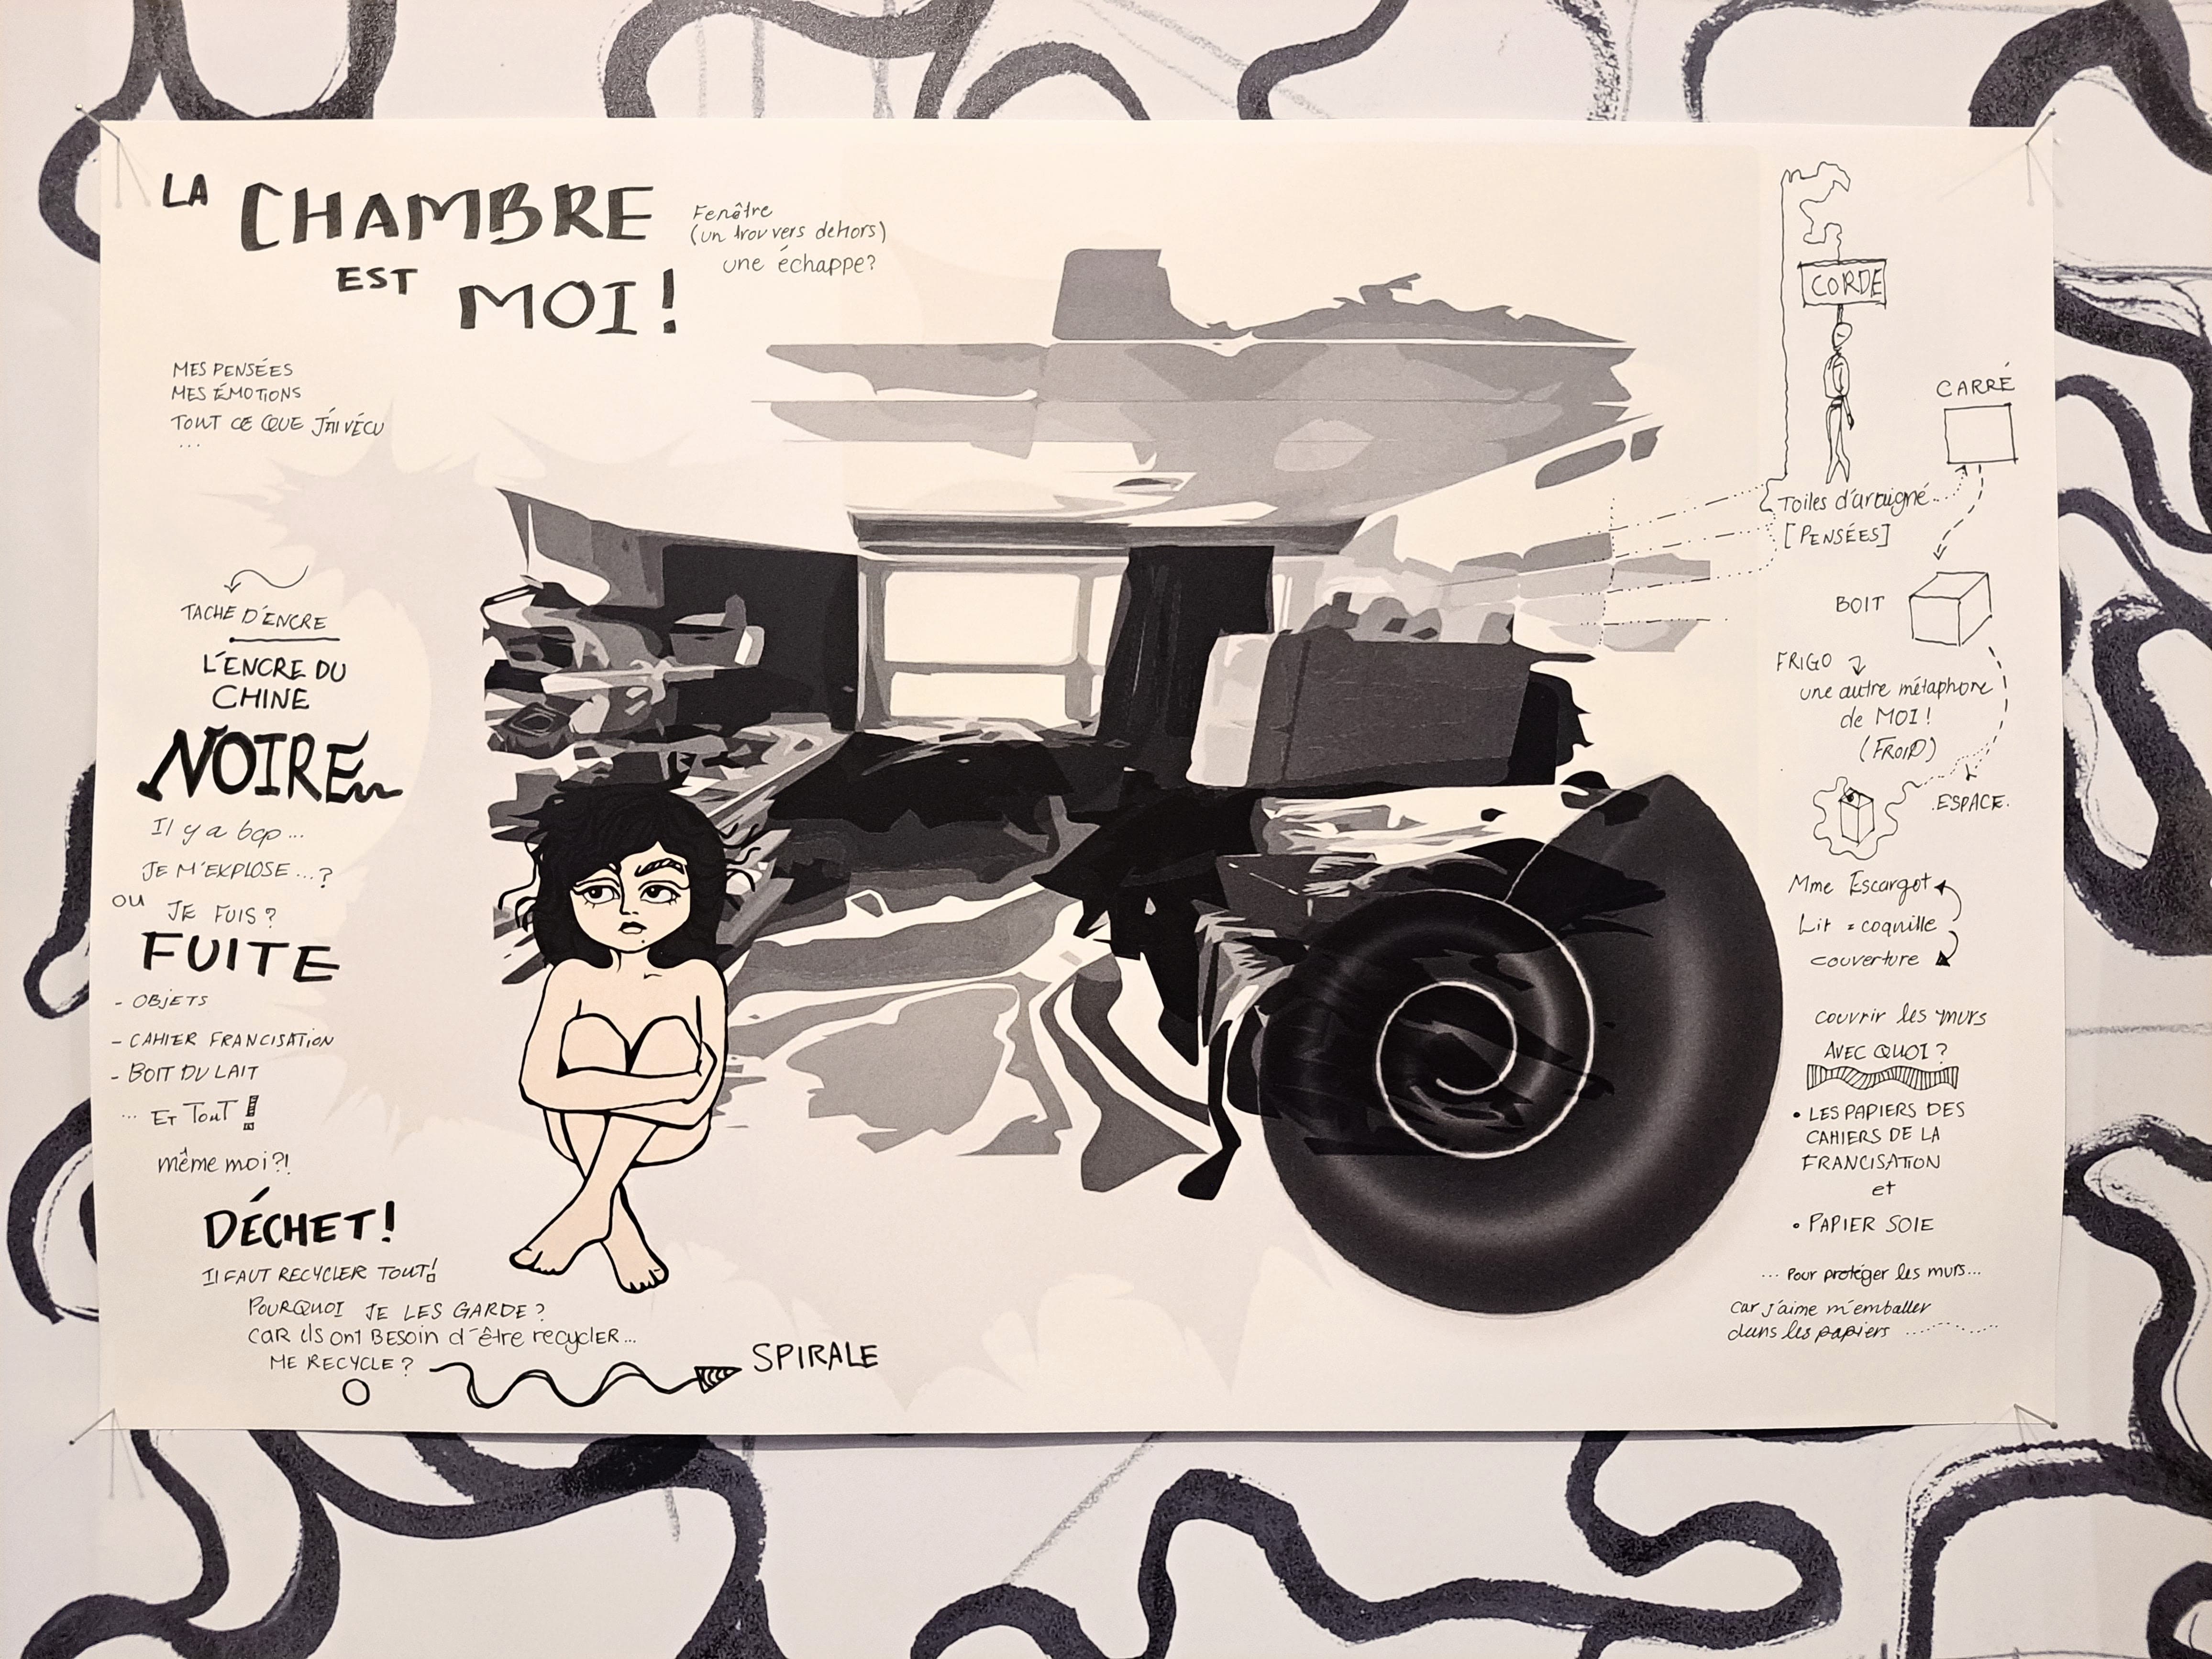 LA CHAMBRE
EST MOI!
Fenêtre
(un trou vers dehors)
une échappe?
MES PENSÉES
MES ÉMOTIONS
TOUT CE QUE J'AI VÉCU
...
TACHE D'ENCRE
L'ENCRE DU
CHINE
NOIRE
Il y a bcp...
JE M'EXPLOSE...?
OU
JE FUIS?
FUITE
- OBJETS
- CAHIER FRANCISATION
- BOIT DU LAIT
... ET TOUT!
même moi?!
DÉCHET!
Il FAUT RECYCLER TOUT!
POURQUOI JE LES GARDE?
CAR ils ont BESOIN d'être recycler...
ME RECYCLE?
SPIRALE
CORDE
CARRÉ
Toiles d'araigné
[PENSÉES]
BOIT
FRIGO
une autre métaphore
de MOI!
(FROID)
.ESPACE.
Mme Escargot
Lit = coquille
couverture
couvrir les murs
AVEC QUOI?
• LES PAPIERS DES
CAHIERS DE LA
FRANCISATION
et
• PAPIER SOIE
... Pour protéger les murs...
car j'aime m'emballer
dans les papiers ..........